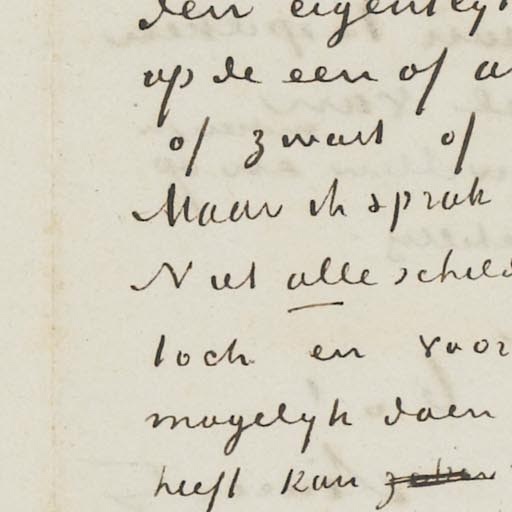 den eigentlij
op de een of a
of zwart of
Maar ik sprak
Niet alle schild
toch en voor
mogelijk doen
heeft kan